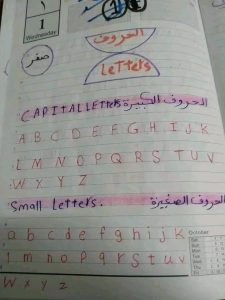 ١
1
Wednesday
صفر
الحروف
Letters
CAPITAL Letters الحروف الكبيرة
A B C D E F G H I J K
L M N O P Q R S T U V
W X Y Z
Small Letters. الحروف الصغيرة
a b c d e f g h i j k
l m n o p q r s t u v
w x y z
October